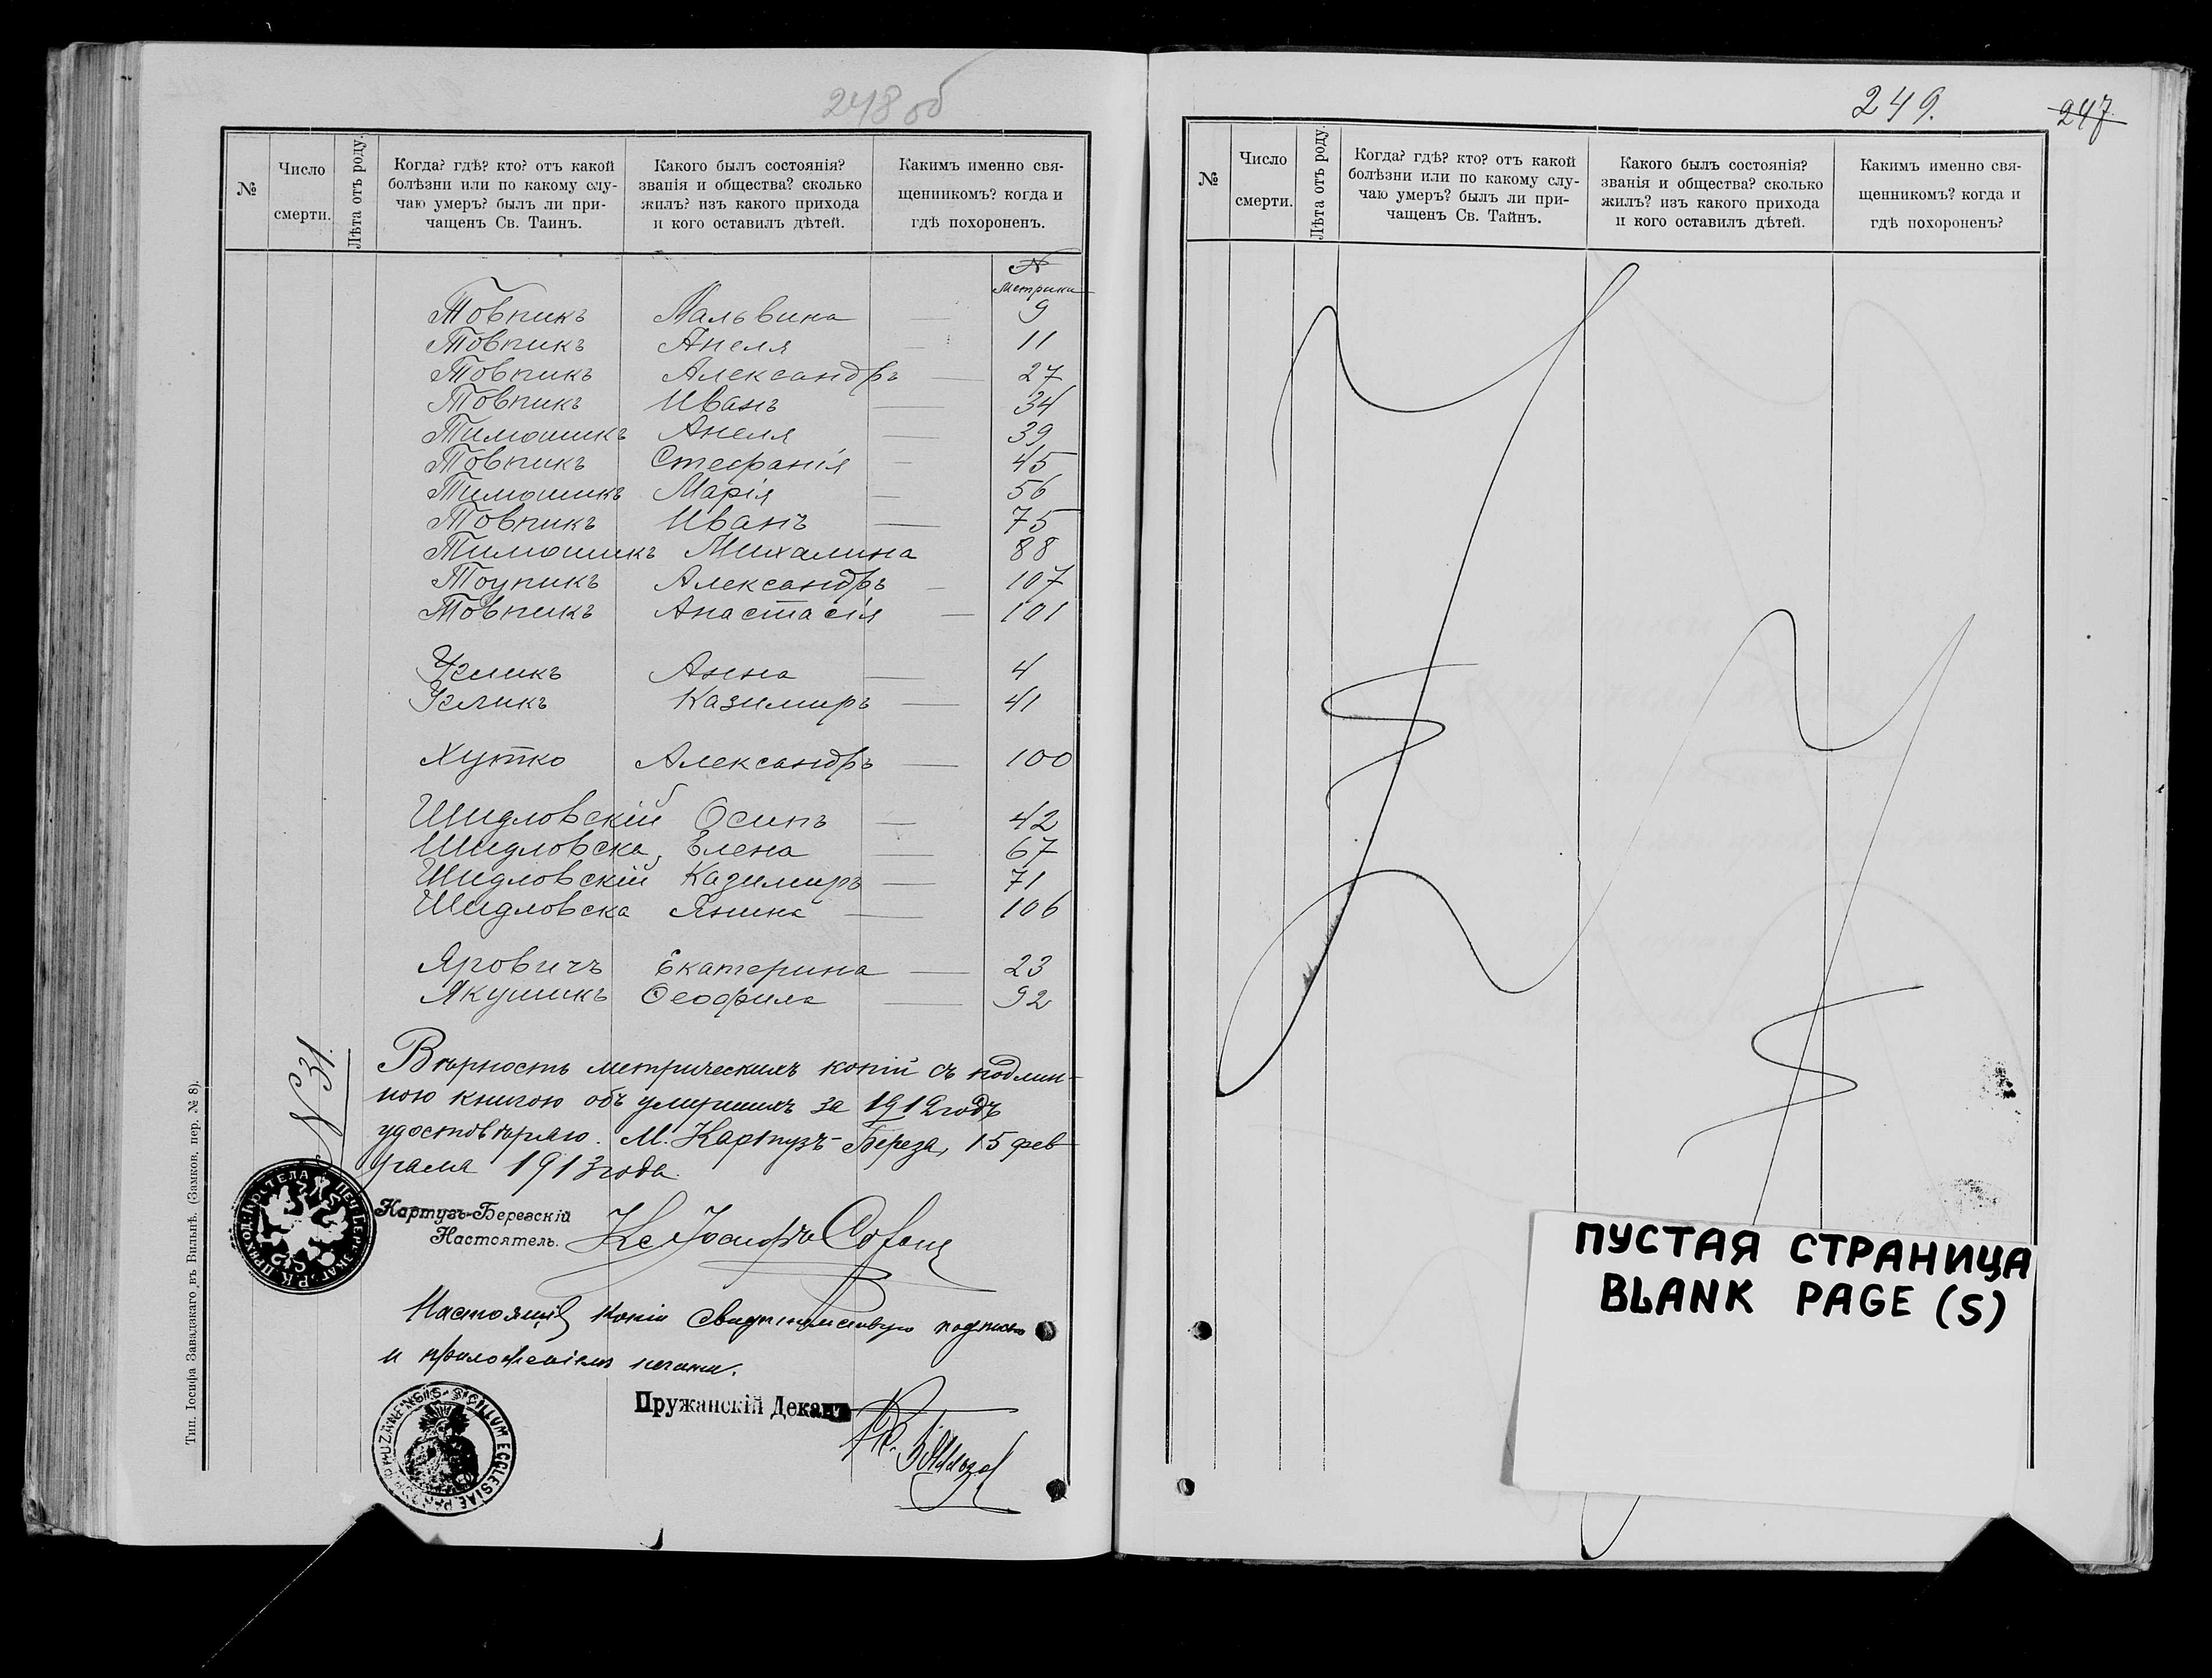 248 об
№
Число смерти.
Лѣта отъ роду.
Когда? гдѣ? кто? отъ какой
болѣзни или по какому слу-
чаю умеръ? былъ ли при-
чащенъ Св. Таинъ.
Какого былъ состоянія?
званія и общества? сколько
жилъ? изъ какого прихода
и кого оставилъ дѣтей.
Какимъ именно свя-
щенникомъ? когда и
гдѣ похороненъ.
№
метрики
Товпикъ Мальвина — 9
Товпикъ Анеля — 11
Товпикъ Александръ — 27
Товпикъ Иванъ — 34
Тимошикъ Анеля — 39
Товпикъ Стефанія — 45
Тимошикъ Марія — 56
Товпикъ Иванъ — 75
Тимошикъ Михалина 88
Тоупикъ Александръ — 107
Товпикъ Анастасія — 101
Анна — 4
Казимиръ — 41
Хутко Александръ — 100
Шидловскій Осипъ — 42
Шидловска Елена — 67
Шидловскій Казимиръ — 71
Шидловска Янина — 106
Яровичъ Екатерина — 23
Якушикъ Ѳеофила — 92
N 31.
Вѣрность метрическихъ копій съ подлин-
ною книгою объ умершихъ за 1912 годъ
удостовѣряю. М. Картузъ-Береза, 15 фев-
раля 1913 года.
Картузъ-Березскій
Настоятель. Кс Іосифъ
Настоящія копіи свидѣтельствую подписью
и приложеніемъ печати.
Пружанскій Деканъ
SIGILLUM ECCLESIAE PRUZANENSIS
Тип. Іосифа Завадзкаго въ Вильнѣ. (Замков. пер. № 8).
249.
247
№
Число смерти.
Лѣта отъ роду.
Когда? гдѣ? кто? отъ какой
болѣзни или по какому слу-
чаю умеръ? былъ ли при-
чащенъ Св. Тайнъ.
Какого былъ состоянія?
званія и общества? сколько
жилъ? изъ какого прихода
и кого оставилъ дѣтей.
Какимъ именно свя-
щенникомъ? когда и
гдѣ похороненъ?
ПУСТАЯ СТРАНИЦА
BLANK PAGE (S)